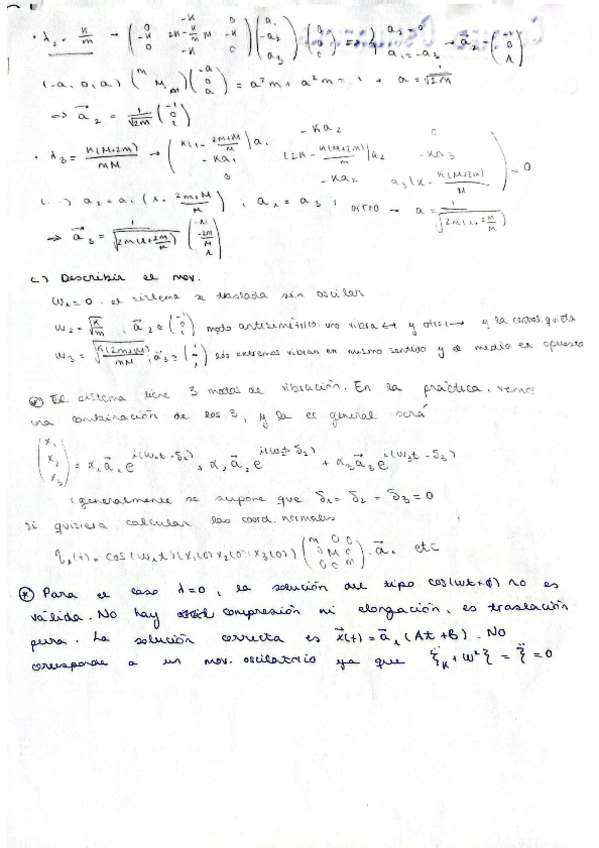 · λ₂ = K/m → (0 -K 0; -K 2K - K/m M -K; 0 -K 0)(a₁; -a₂; a₃) (0; 0; 0) ⟹ } a₂ = 0 a₁ = -a₃ → a⃗₂ = (-1; 0; 1)
(-a, 0, a) (m M m)(-a; 0; a) = a²m + a²m = 1 + a = 1/√2m
⟹ a⃗₂ = 1/√2m (-1; 0; 1)
· λ₃ = K(M+2m)/mM → (K(1 - 2m+M/M)a₁ -Ka₂ 0; -Ka₁ (2K - K(M+2m)/m)a₂ -Ka₃; 0 -Ka₂ a₃(K - K(M+2m)/M) = 0
(...) a₂ = a₁(1 - 2m+M/M) ; a₁ = a₃ ; → a = 1/√2m(1+2m/M)
⟹ a⃗₃ = 1/√2m(1+2m/M) (1; -2m/M; 1)
c) Describir el mov.
ω₁ = 0. el sistema se traslada sin oscilar
ω₂ = √K/m , a⃗₂ ∝ (-1; 0; 1) modo antisimétrico: uno vibra ↔ y otro y la central quieta
ω₃ = √K(2m+M)/mM ; a⃗₃ los extremos vibran en mismo sentido y el medio en opuesto
El sistema tiene 3 modos de vibración. En la práctica, vemos
una combinación de los 3, y la ec general será
(x₁; x₂; x₃) = α₁a⃗₁e^i(ω₁t - δ₁) + α₂a⃗₂e^i(ω₂t - δ₂) + α₃a⃗₃e^i(ω₃t - δ₃)
(generalmente se supone que δ₁ = δ₂ = δ₃ = 0
Si quisiera calcular las coord. normales
η₁(t) = cos(ω₁t)(x₁(0) x₂(0) x₃(0)) (m 0 0; 0 M 0; 0 0 m) · a⃗₁ etc
* Para el caso λ=0, la solución del tipo cos(ωt+φ) no es
válida. No hay compresión ni elongación, es traslación
pura. La solución correcta es x⃗(t) = a⃗₁(At + B). No
corresponde a un mov. oscilatorio ya que {ξ̈_K + ω²} = ξ̈ = 0